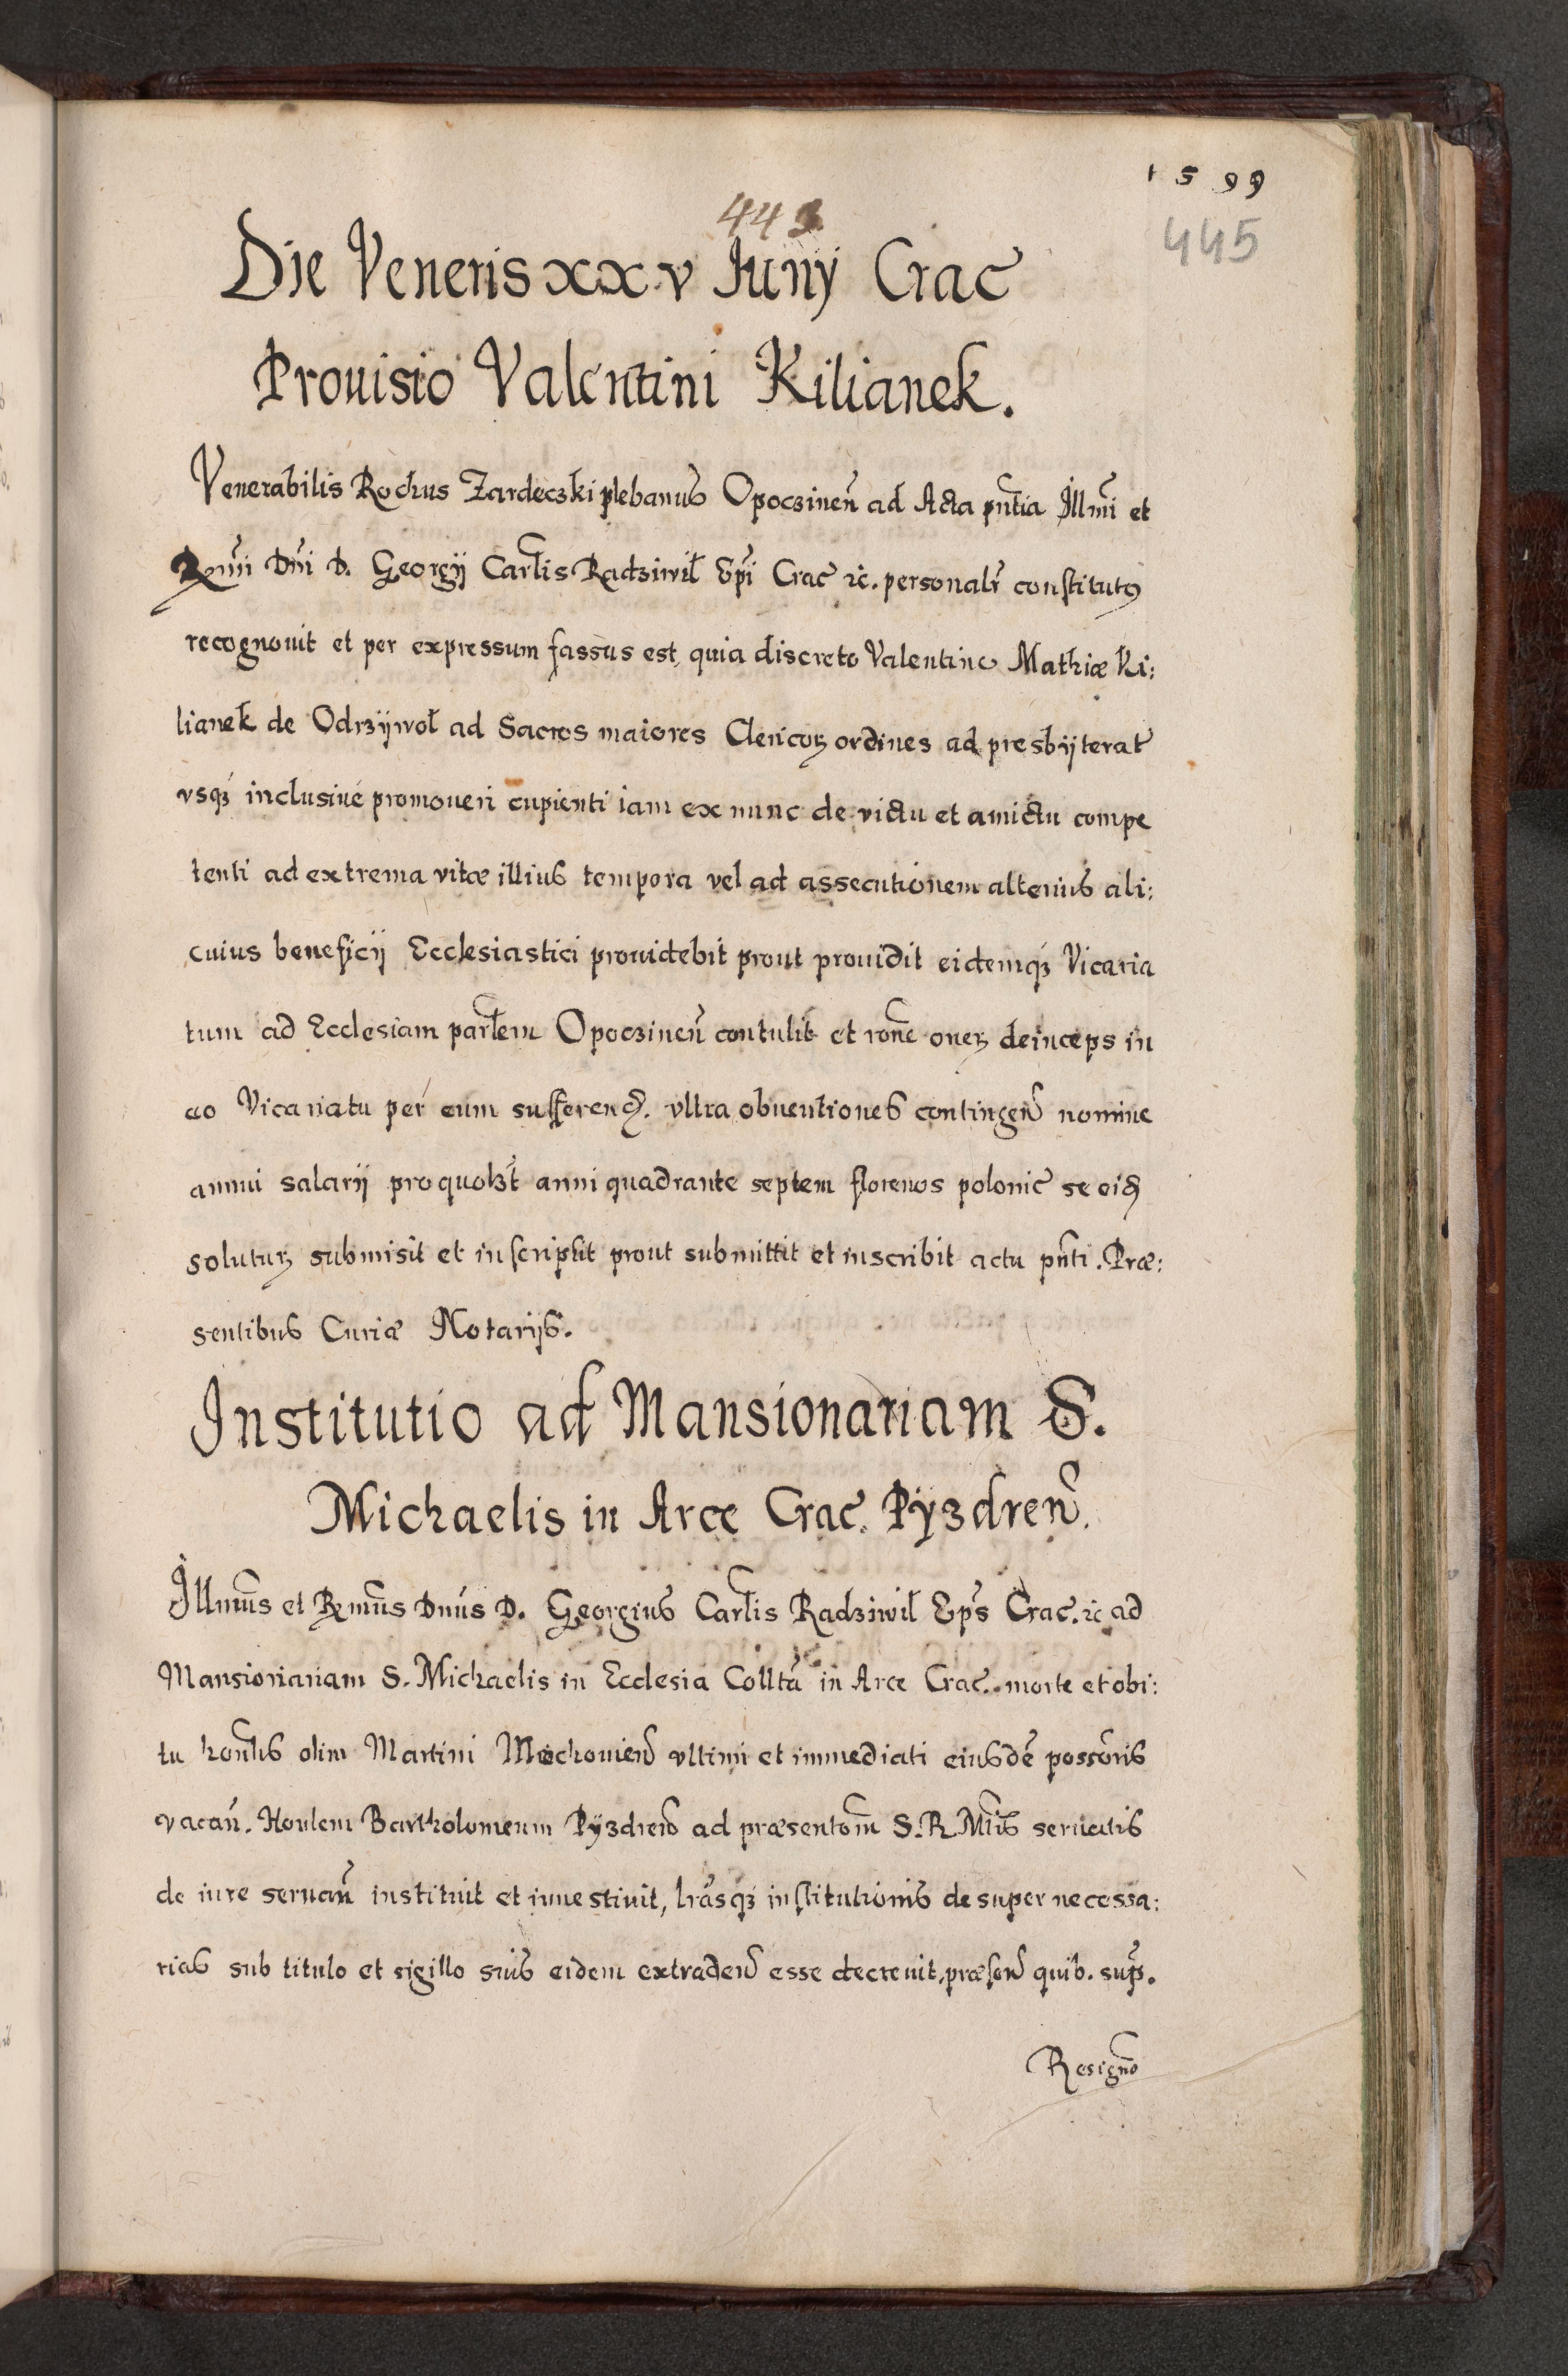 1599
443
445
Die Veneris xxv Junÿ Crac̃
Prouisio Valentini Kilianek.
Venerabilis Rochus Zardeczki plebanus Opoczineñ ad Acta pñtia Illmi et
Rmi Dñi D. Georgÿ Carlis Radziwił Epĩ Crac̃ ꝛc. personalr̃ constitutꝯ
recognouit et per expressum fassus est, quia discreto Valentino Mathiæ Ki:
lianek de Odrzÿwoł ad Sacros maiores Clericoꝝ ordines ad presbÿterat̃
vsqꝫ inclusiué promoueri cupienti iam ex nunc de victu et amictu compe
tenti ad extrema vitæ illius tempora vel ad assecutionem alterius ali:
cuius beneficÿ Ecclesiastici prouidebit prout prouidit eidemqꝫ Vicaria
tum ad Ecclesiam parlem Opoczineñ contulit et rõne oneꝝ deinceps in
eo Vicariatu per eum sufferend̃. vltra obuentiones contingeñ nomine
annui salarÿ pro quolꝫt anni quadrante septem florenos polonic̃ se eid̃
solutuꝝ submisit et inscripsit prout submittit et inscribit actu pñti. Præ:
sentibus Curiæ Notarÿs.
Institutio ad Mansionariam S.
Michaelis in Arce Crac̃. Pÿzdreñ.
Illmus̃ et Rmus̃ Dnús D. Georgius Carlis Radziwił Epũs Crac̃. ꝛc ad
Mansionariam S. Michaelis in Ecclesia Colltã in Arce Crac̃. morte et obi:
tu honlis olim Martini Miechouieñ vltimi et immediati eiusdẽ possoris
vacañ. Honlem Bartholomeum Pÿzdreñ ad præsentom̃ S. R. Mtis seruatis
de iure seruañ instituit et inuestiuit, lrãsqꝫ institutionis desuper necessa:
rias sub titulo et sigillo suis eidem extradeñ esse decreuit, præseñ quib. sup̃.
Resigno